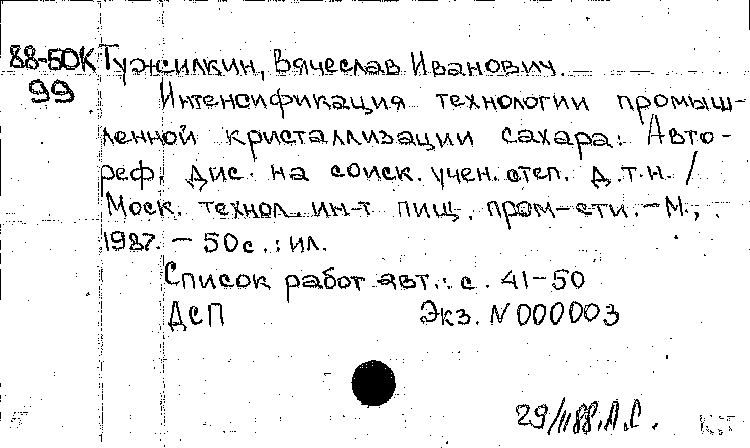 88-50К Тужилкин, Вячеслав Иванович.
99 Интенсификация технологии промыш-
ленной кристаллизации сахара: Авто-
реф. дис. на соиск. учен. степ. д.т.н. /
Моск. технол. ин-т пищ. пром-сти. - М.,
1987. - 50 с.: ил.
Список работ авт.: с. 41-50
ДСП Экз. N 000003
29/II 88. А.С.
К.Т